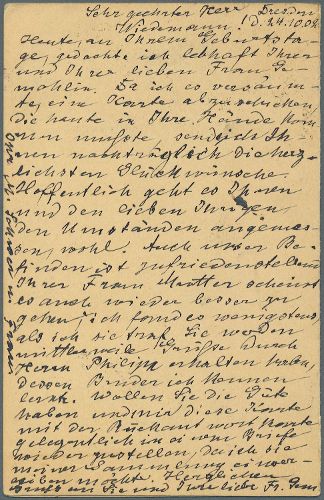 Sehr geehrter Herr
Wiedemann! Dresden
d. 24.10.08.
Heute, an Ihrem Geburtsta-
ge, gedachte ich lebhaft Ihrer
und Ihrer lieben Frau Ge-
mahlin. Da ich es versäum-
te, eine Karte abzuschicken,
die heute in Ihre Hände kom-
men mußte, sende ich Ih-
nen nachträglich die herz-
lichsten Glückwünsche.
Hoffentlich geht es Ihnen
und den lieben Ihrigen,
den Umständen angemes-
sen, wohl. Auch unser Be-
finden ist zufriedenstellend.
Ihrer Frau Mutter scheint
es auch wieder besser zu
gehen; ich fand es wenigstens,
als ich sie traf. Sie werden
mittlerweile Grüße durch
Herrn Philipp erhalten haben,
dessen Bruder ich kennen
lernte. Wollen Sie die Güte
haben und mir diese Karte
mit der Buchaer wort Karte
gelegentlich in einem Briefe
wieder zustellen, da ich sie
meiner Sammlung einver-
leiben möchte. Herzlichen
Gruß an Sie und Ihre liebe Fr. Gem